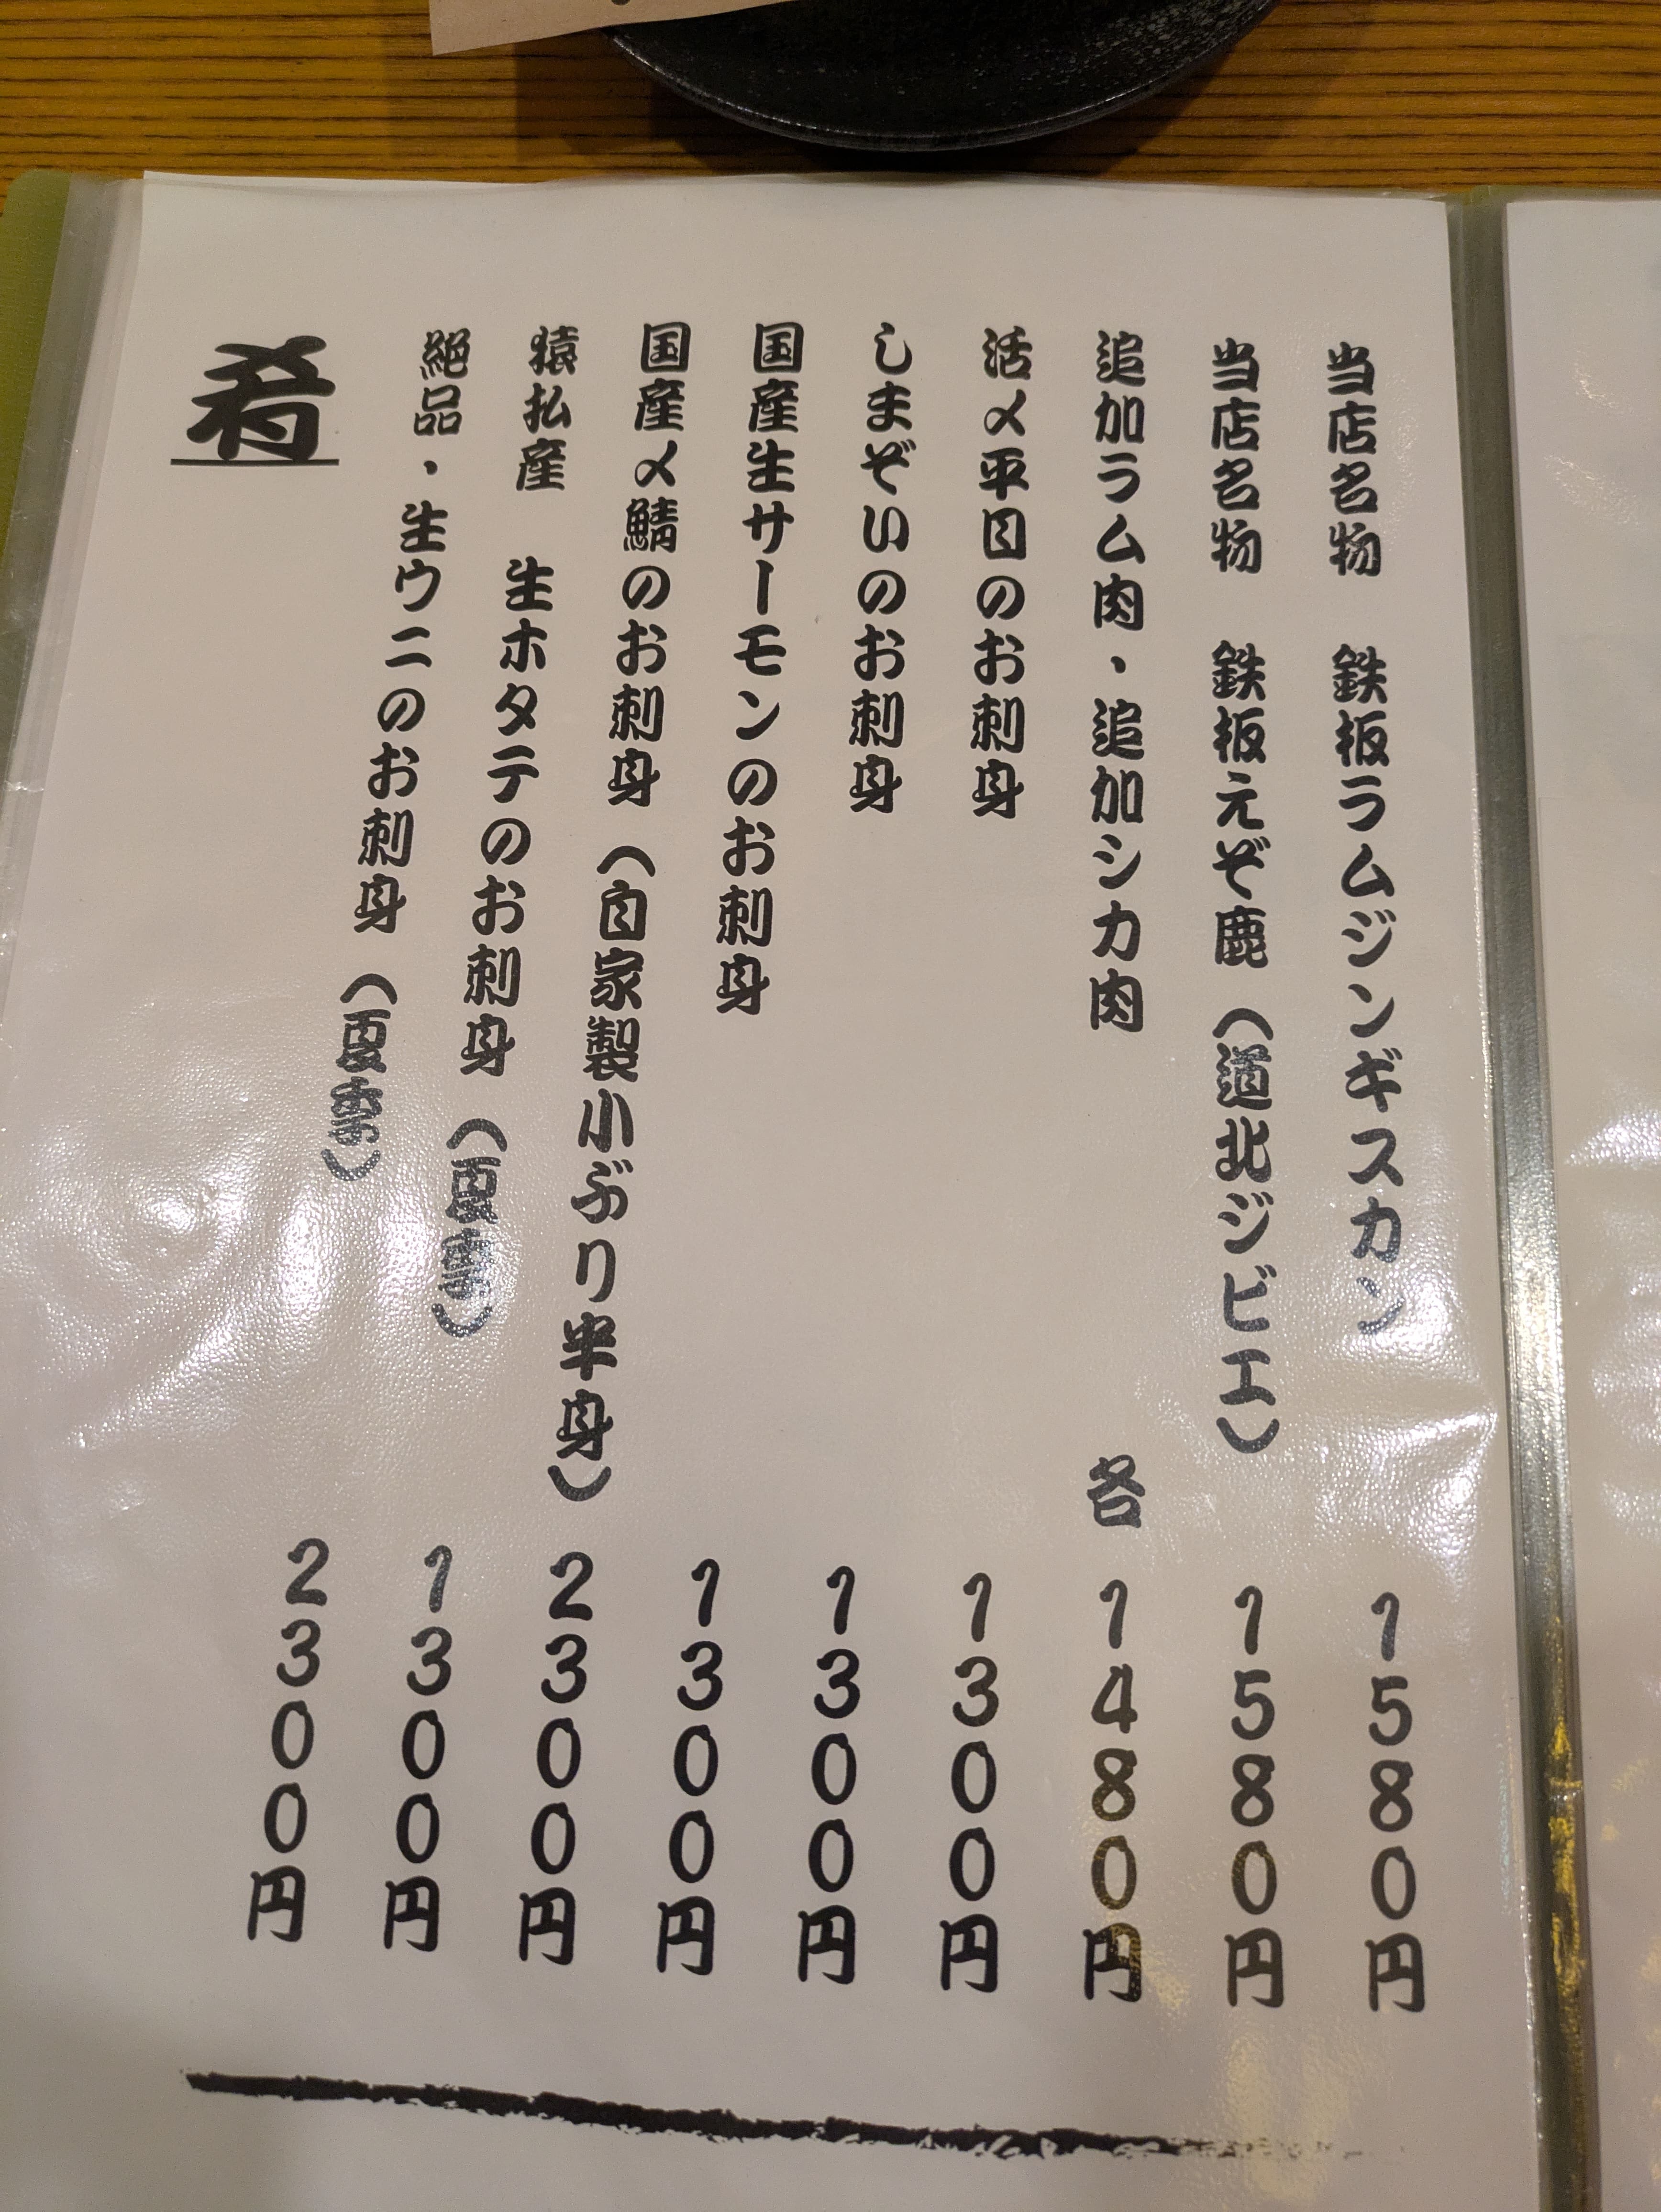 当店名物　鉄板ラムジンギスカン　1580円
当店名物　鉄板えぞ鹿（道北ジビエ）　1580円
追加ラム肉・追加シカ肉　各　1480円
活〆平目のお刺身　1300円
しまぞいのお刺身　1300円
国産生サーモンのお刺身　1300円
国産〆鯖のお刺身（自家製小ぶり半身）　2300円
猿払産　生ホタテのお刺身（夏季）　1300円
絶品・生ウニのお刺身（夏季）　2300円
肴